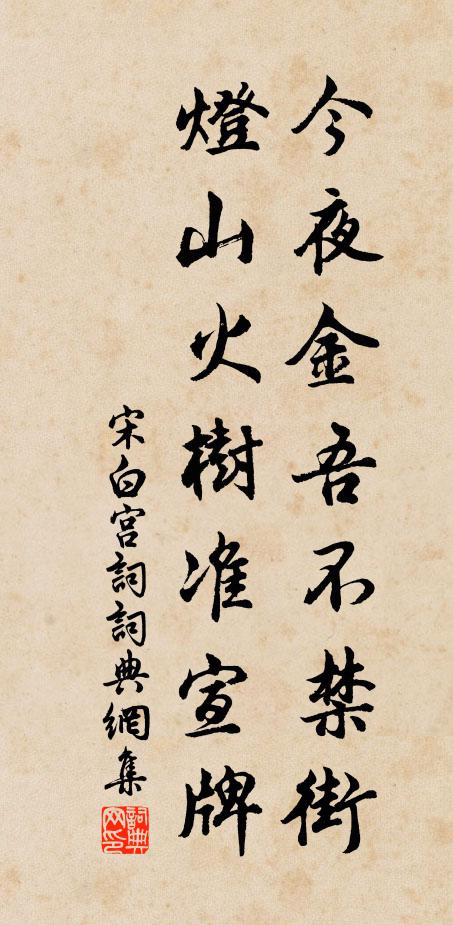 今夜金吾不禁街
燈山火樹准宣牌
宋白宫詞詞典網集
詞典网印